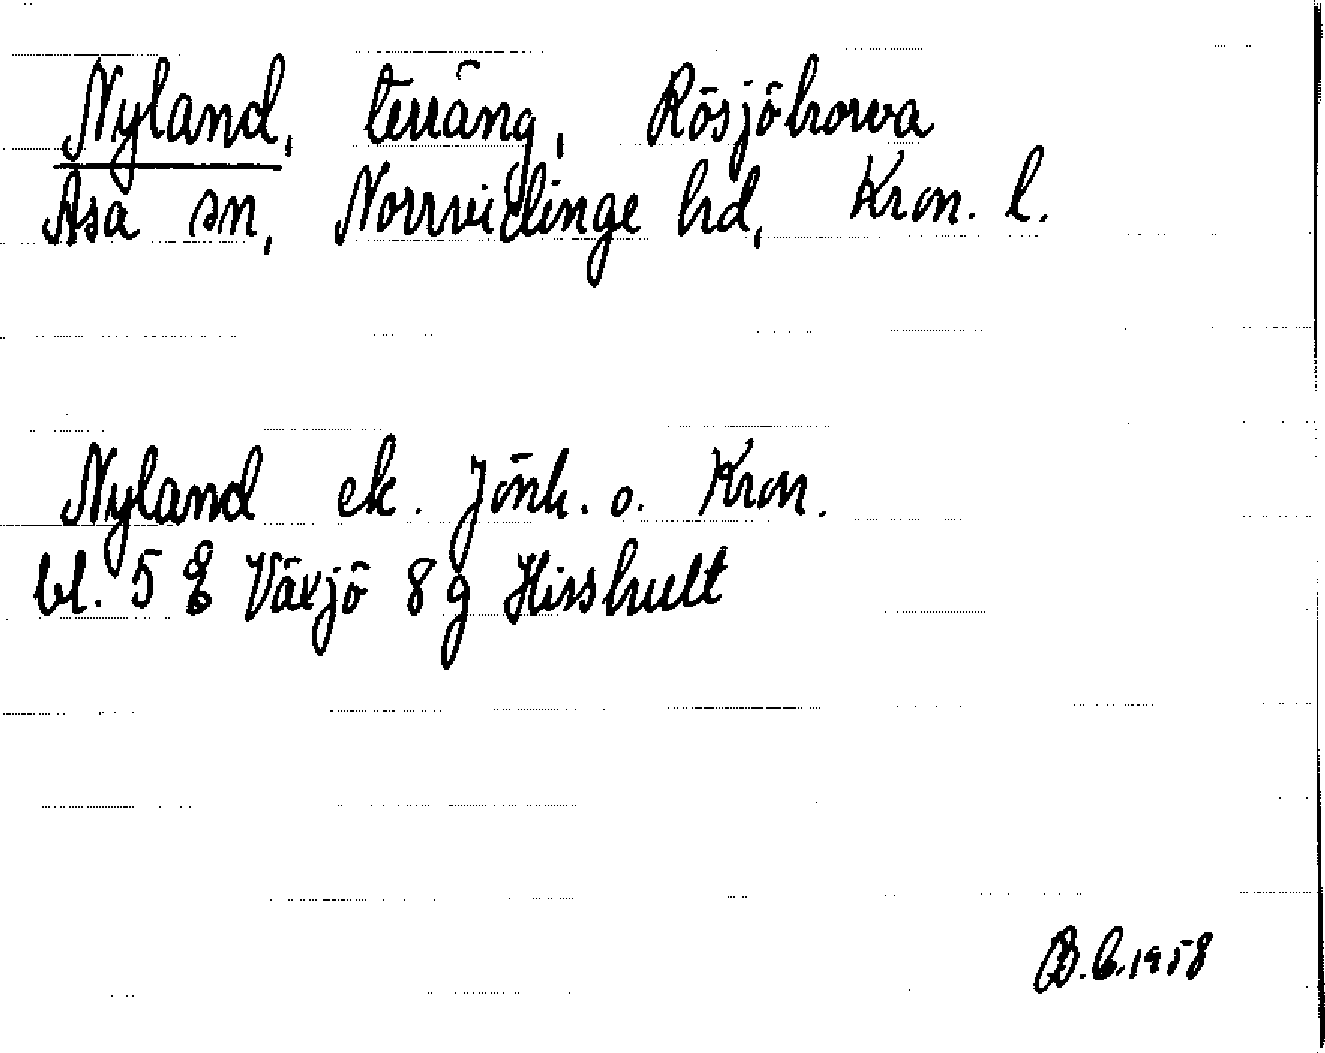 Nyland, terräng, Rösjöhorva
Asa sn, Norrvidinge hd, Kron. l.
Nyland ek. Jönk. o. Kron.
bl. 5 E Växjö 8 g Hisshult
B.E. 1958